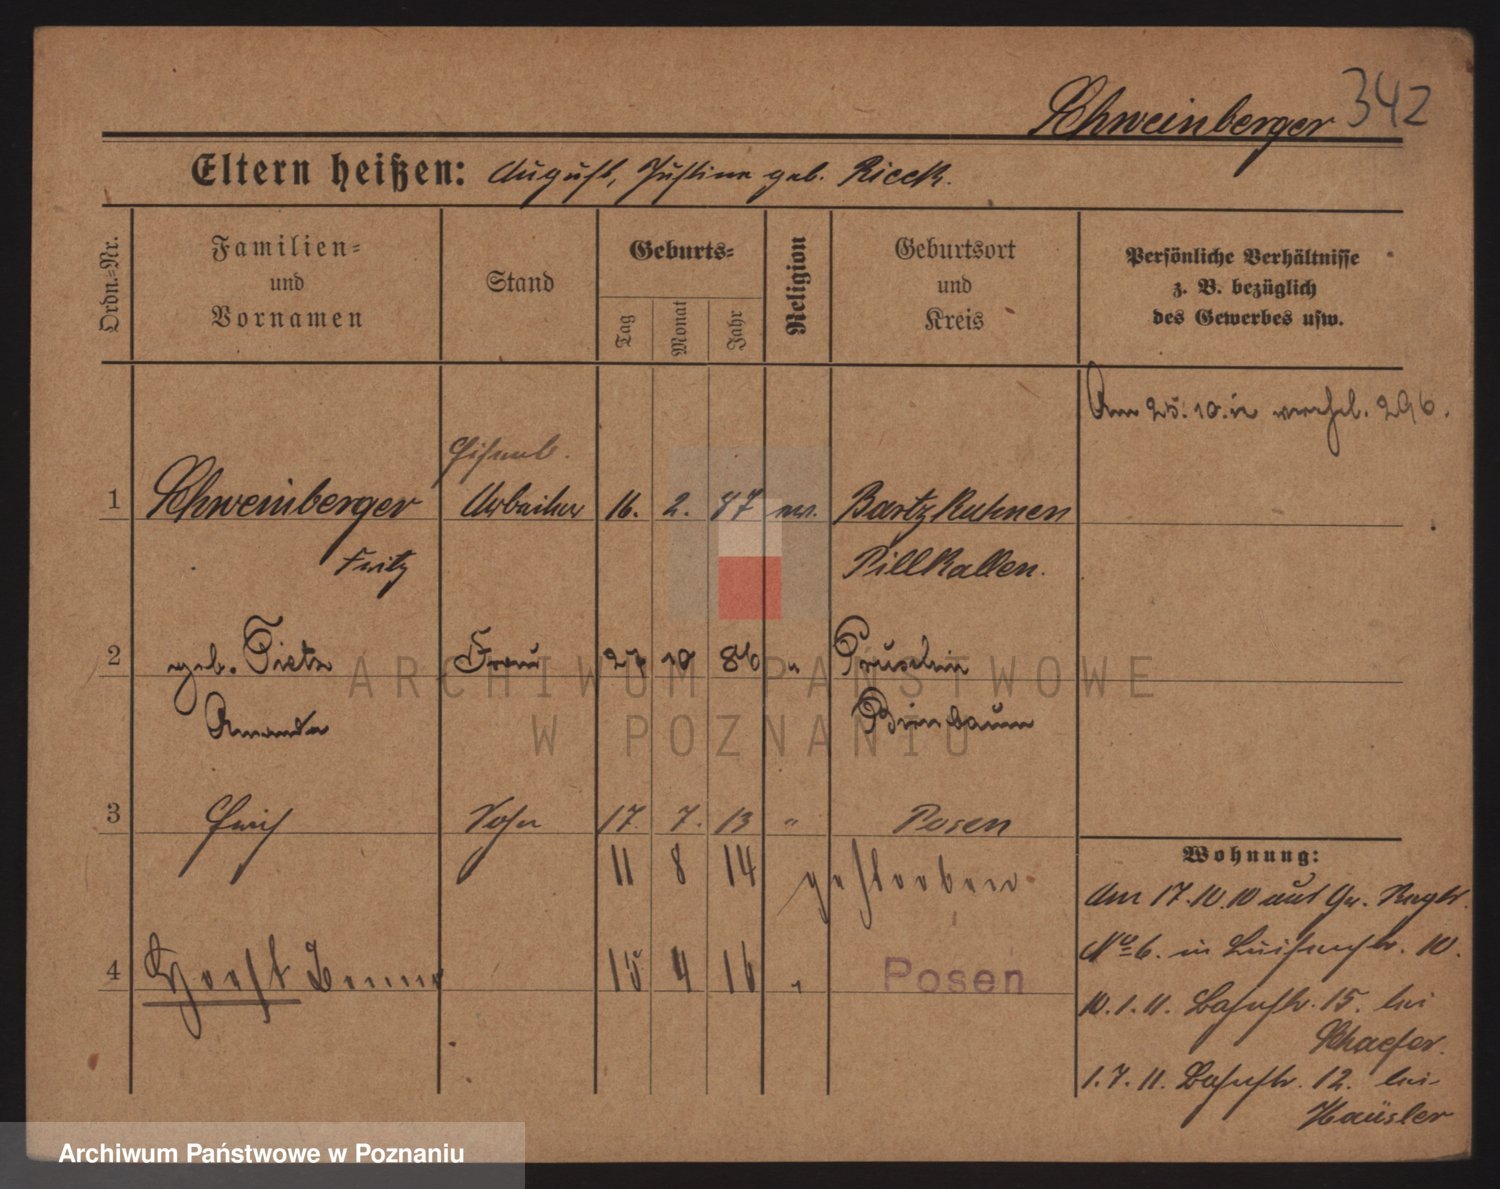 Schweinberger 342
Eltern heißen: August, Justine geb. Rieck.
Ordn.=Nr.
Familien=
und
Vornamen
Stand
Geburts=
Tag
Monat
Jahr
Religion
Geburtsort
und
Kreis
Persönliche Verhältnisse
z. B. bezüglich
des Gewerbes usw.
Am 25.10.12 verehel. 296.
Eisenb.
1 Schweinberger Arbeiter 16. 2. 87 ev. Bartzkuhnen
Fritz Pillkallen.
2 geb. Tietz Frau 27 10 86 "
Amanda Birnbaum
3 Erich Sohn 17. 7. 13 " Posen
11 8 14 gestorben
4 Horst Benno 15 4 16 " Posen
Wohnung:
Am 17.10.10 aus Gr.
No 6. in Luisenstr. 10.
10.1.11. Bahnstr. 15. bei
Schaefer.
1.7.11. Bahnstr. 12. bei
Häusler
ARCHIWUM PAŃSTWOWE
W POZNANIU
Archiwum Państwowe w Poznaniu